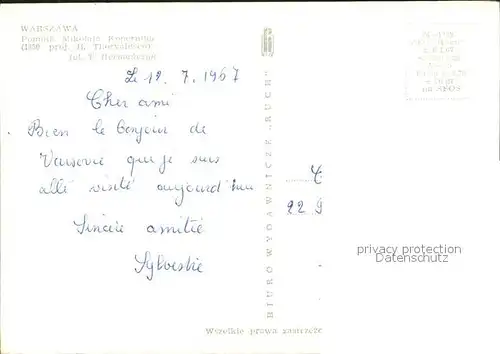 WARSZAWA
Pomnik Mikołaja Kopernika
(1830 proj. B. Thorvaldsen)
fot. T. Hermanczyk
Le 12. 7. 1967
Cher ami
Bien le bonjour de
Varsovie que je suis
allé visité aujourd'hui
Sincère amitié
Sylvestre
BIURO WYDAWNICZE „RUCH"
22 9
Wszelkie prawa zastrzeże
privacy protection
Datenschutz